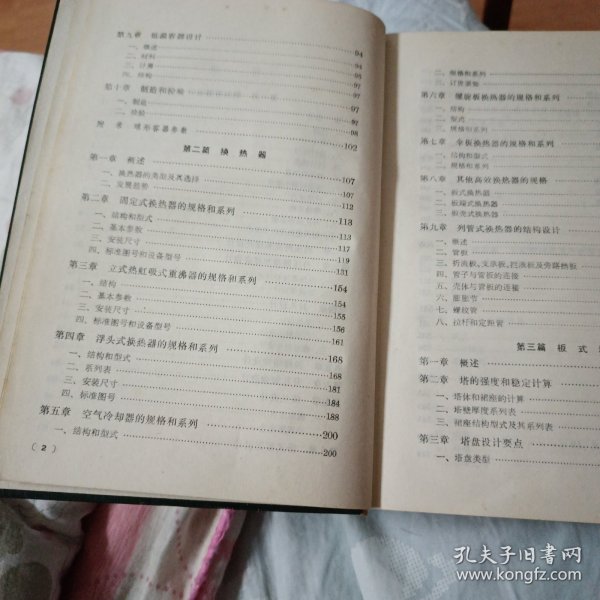 第九章 低温容器设计 94
一、概述 94
二、材料 94
三、计算 95
四、结构 95
第十章 制造和检验 97
一、制造 97
二、检验 97
附录 球形容器参数 102
第二篇 换热器
第一章 概述 107
一、换热器的类型及其选择 107
二、发展趋势 112
第二章 固定式换热器的规格和系列 113
一、结构和型式 113
二、基本参数 117
三、安装尺寸 119
四、标准图号和设备型号 131
第三章 立式热虹吸式重沸器的规格和系列 154
一、结构 154
二、基本参数 155
三、安装尺寸 156
四、标准图号和设备型号 161
第四章 浮头式换热器的规格和系列 168
一、结构和型式 168
二、系列表 181
三、安装尺寸 184
四、标准图号 188
第五章 空气冷却器的规格和系列 200
一、结构和型式 200
( 2 )
二、规格和系列
三、计算
第六章 螺旋板换热器的规格和系列
一、结构
二、型式
三、规格和系列
第七章 伞板换热器的规格和系列
一、结构和型式
二、规格和系列
第八章 其他高效换热器的规格
一、板式换热器
二、板翅式换热器
三、板壳式换热器
第九章 列管式换热器的结构设计
一、概述
二、管板
三、折流板、支承板、拦液板及旁路挡板
四、管子与管板的连接
五、壳体与管板的连接
六、膨胀节
七、螺纹管
八、拉杆和定距管
第三篇 板式
第一章 概述
第二章 塔的强度和稳定计算
一、塔体和裙座的计算
二、塔壁厚度系列表
三、裙座结构型式及其系列表
第三章 塔盘设计要点
一、塔盘类型
孔夫子旧书网
www.kongfz.com